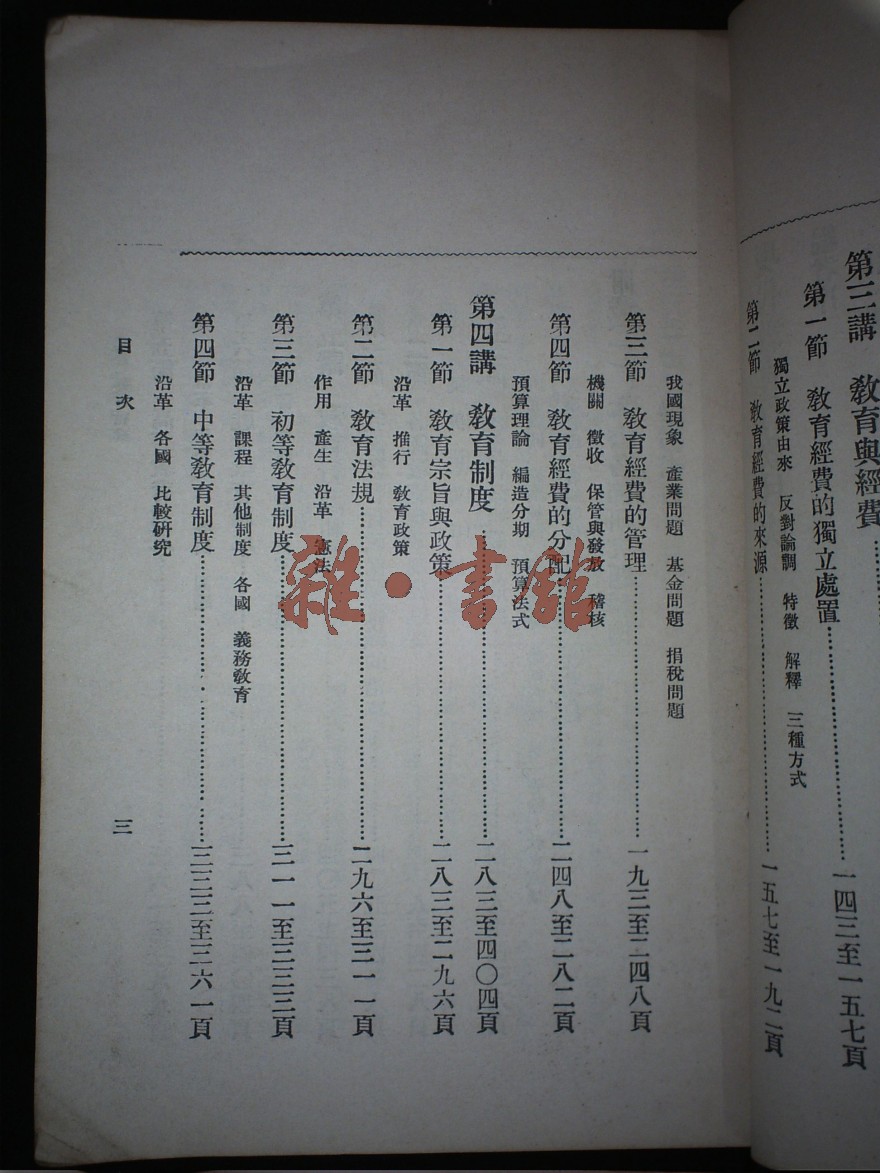 第三講 教育與經費
第一節 教育經費的獨立處置 一四三至一五七頁
獨立政策由來 反對論調 特徵 解釋 三種方式
第二節 教育經費的來源 一五七至一九二頁
我國現象 產業問題 基金問題 捐稅問題
第三節 教育經費的管理 一九三至二四八頁
機關 徵收 保管與發放 稽核
第四節 教育經費的分配 二四八至二八二頁
預算理論 編造分期 預算法式
第四講 教育制度 二八三至四〇四頁
第一節 教育宗旨與政策 二八三至二九六頁
沿革 推行 教育政策
第二節 教育法規 二九六至三一一頁
作用 產生 沿革 憲法
第三節 初等教育制度 三一一至三三三頁
沿革 課程 其他制度 各國 義務教育
第四節 中等教育制度 三三三至三六一頁
沿革 各國 比較研究
目次
三
雜·書館